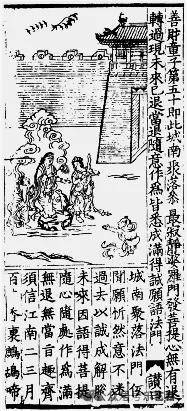 善財童子第五十即此城南聚落參最寂靜婆羅門發菩提心無有退
轉過現未來已退當退隨意作為皆悉成滿得誠願語法門 讚曰
城南聚落法門
聞願忻然意不
過去以誠成解脫
未來因語得菩提
隨心隨處作為滿
無退無當旨趣齊
須信江南二三月
百裏鷓鴣啼